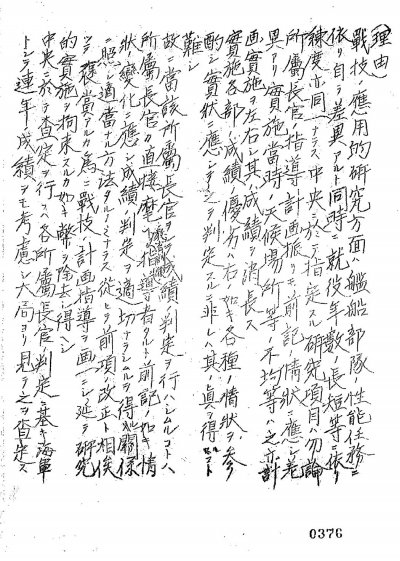 (理由)
戦技ノ應用的研究方面ハ艦船部隊ノ性能任務ニ
依リ自ラ差異アルト同時ニ就役年数ノ長短等ニ依リ
練度亦同一ナラズ中央ニ於テ指定スル研究項目ハ勿論
所属長官ノ指導計画振リモ前記ノ情状ニ應シ差
異アリ実施当時ノ天候場所等ノ不均等ハ之亦計
画実施ヲ左右シ其ノ成績ヲ消長ス
実施各部ノ成績優劣ハ右ノ如キ各種ノ情状ヲ参
酌シ実状ニ應シテ判定スルニ非レハ其ノ真ヲ得ルコト
難シ
故ニ當該所属長官ヲシテ成績ノ判定ヲ行ハシムルコトハ
所属長官カ直接ノ指導者タルト前記ノ如キ情
状変化ニ應シ成績ノ判定ヲ適切ナラシムルヲ得ル関係
ニ照シ適当ナル方法タルノミナラス従ヒテ前項ノ改正ト相俟
ツテ審査アルカ為ニ戦技ノ計画指導ヲ画一ニシ延テ研究
的実施ヲ拘束スルカ如キ弊ヲ除去シ得ヘシ
中央ニ於テ査定ヲ行フハ各所属長官ノ判定ニ基キ海軍
トシテ連年ノ成績ヲモ考慮シ大局ヨリ見テ之ヲ査定ス
0376